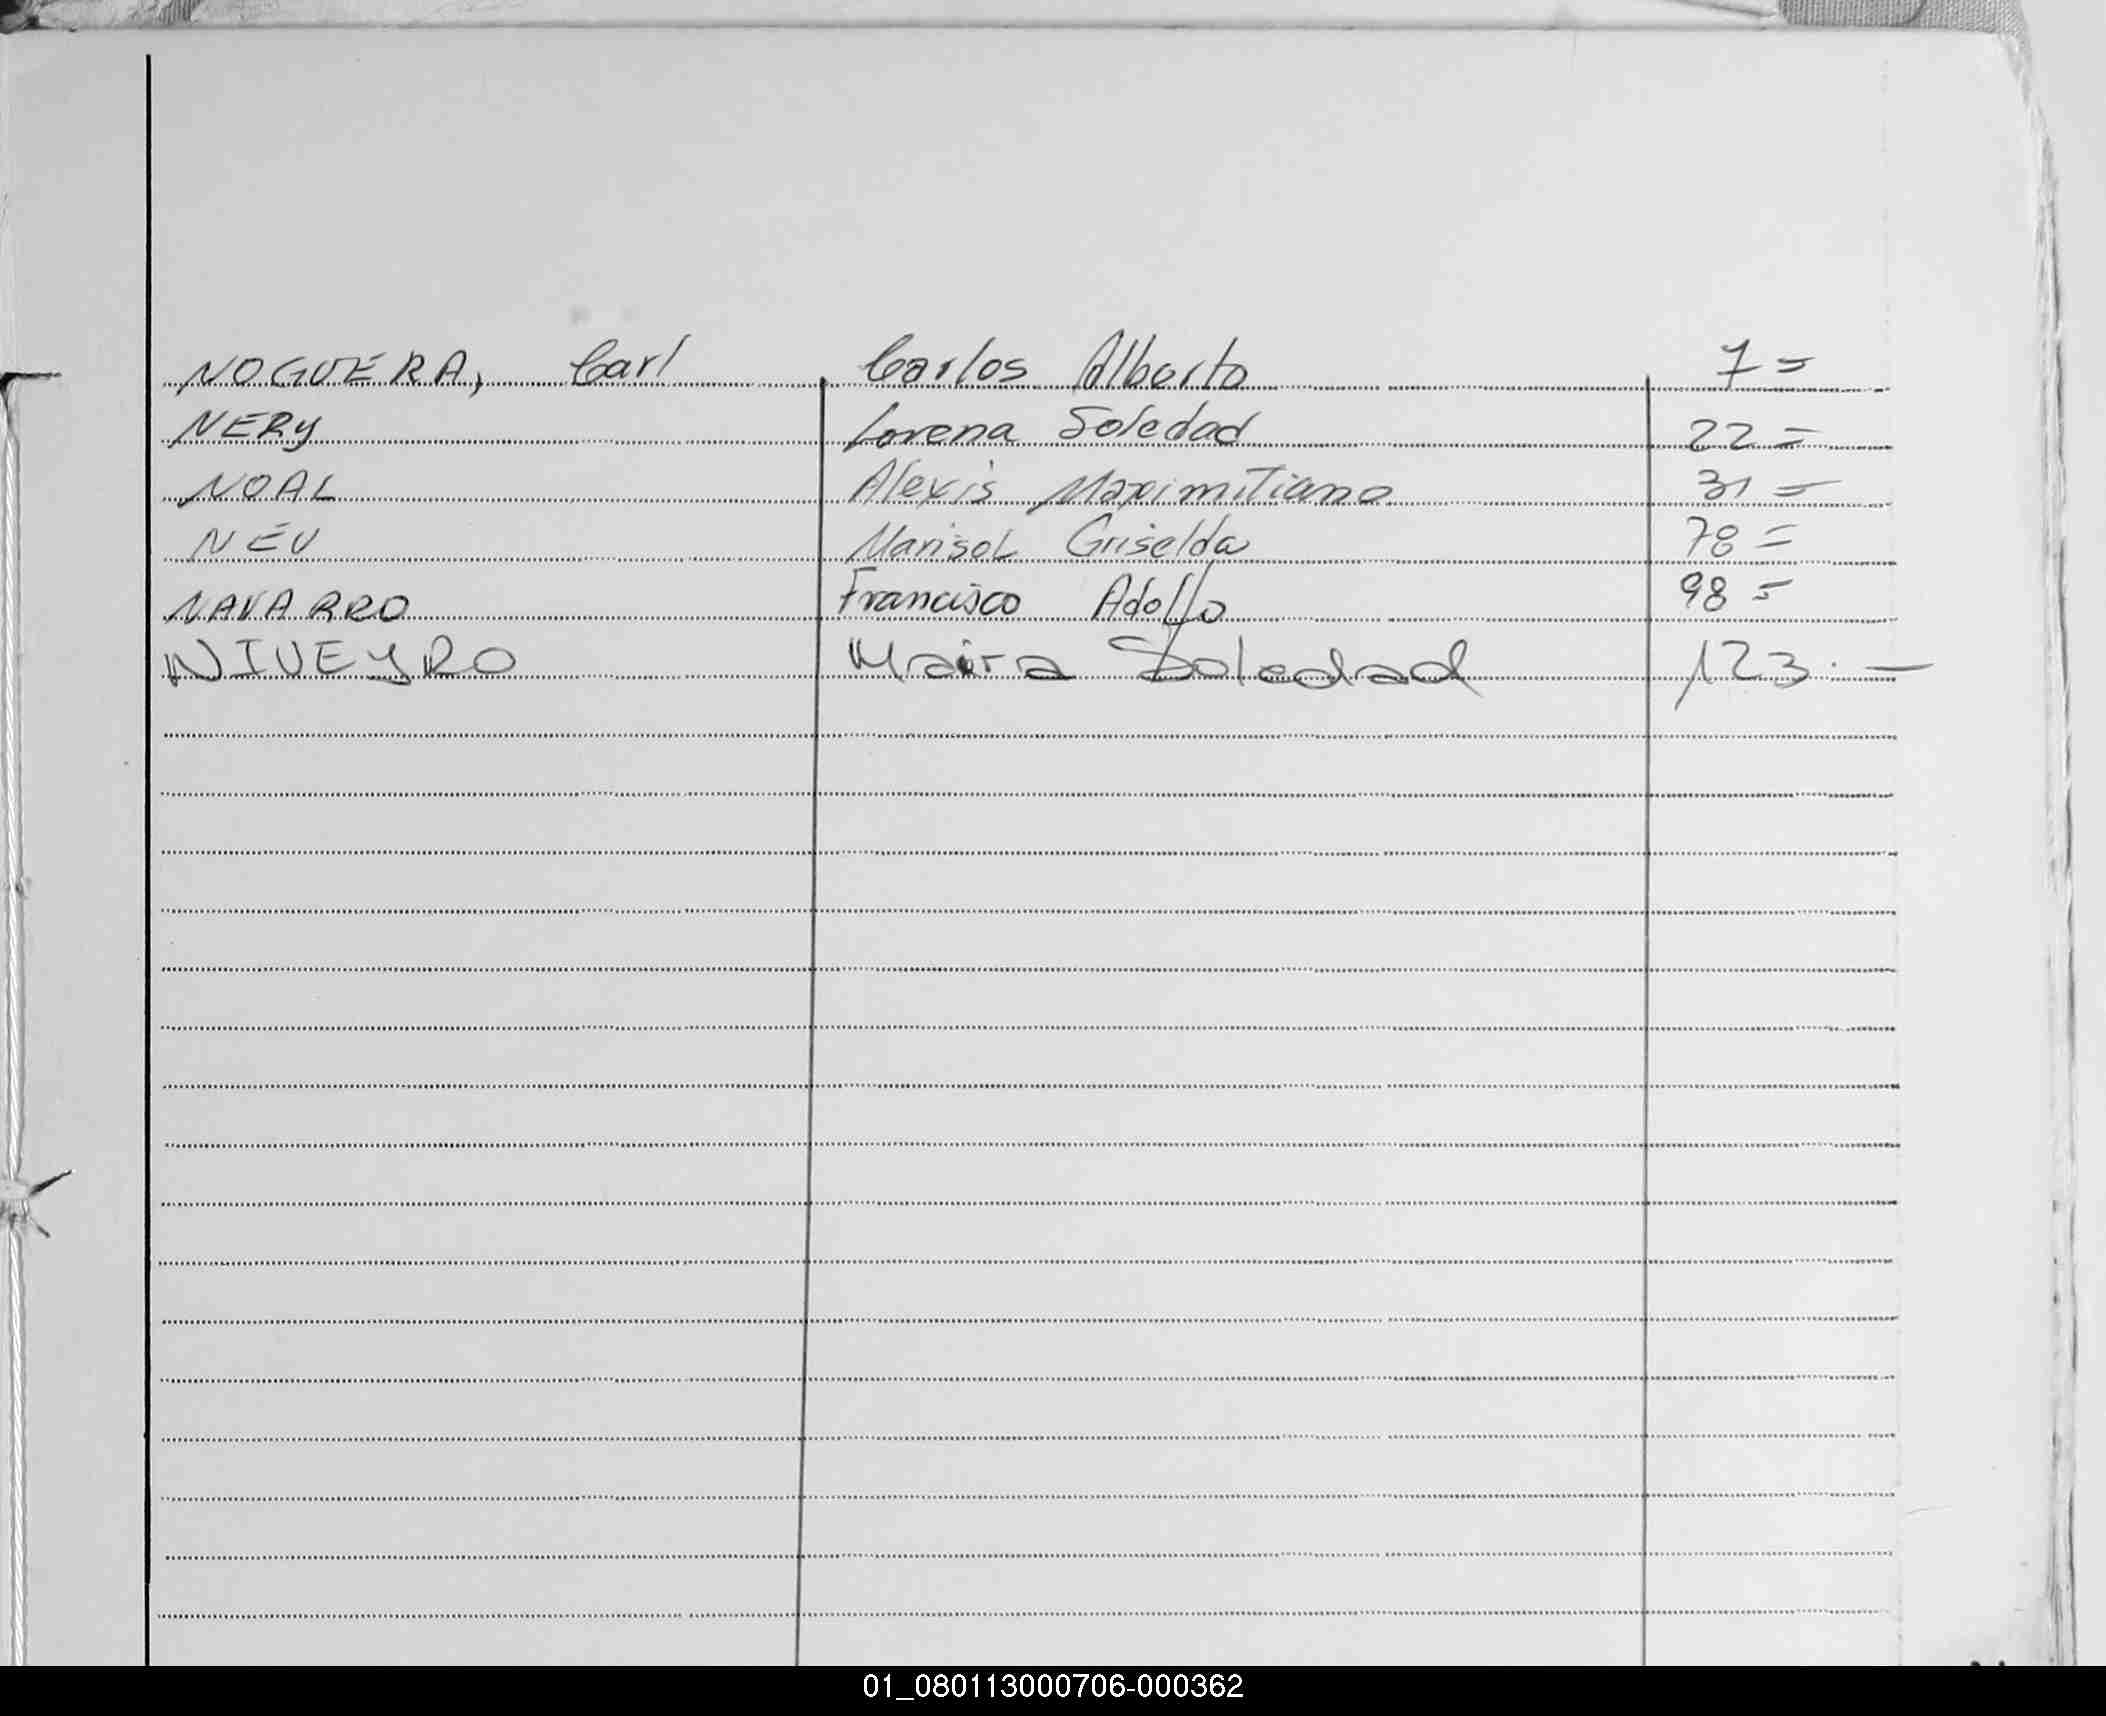 NOGUERA, Carl Carlos Alberto 7=
NERY Lorena Soledad 22=
NOAL Alexis Maximiliano 31=
NEU Marisol Griselda 78=
NAVARRO Francisco Adolfo 98=
NIVEYRO Maira Soledad 123.—
01_080113000706-000362